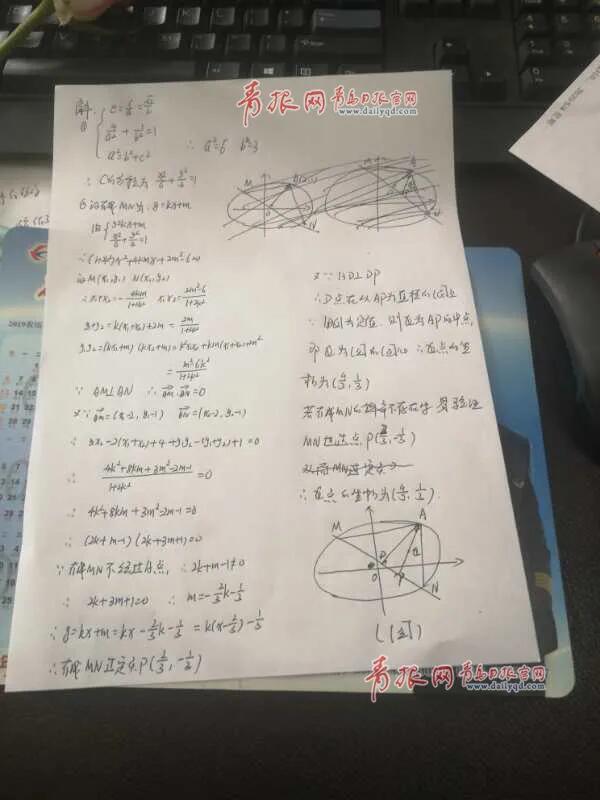 青报网 青岛日报官网
www.dailyqd.com
解:
① e=c/a=√2/2
4/a²+1/b²=1
a²=b²+c²
∴ a²=6 b²=3
∴ C的方程为 x²/6+y²/3=1
② 设直线MN为: y=kx+m
由 y=kx+m
x²/6+y²/3=1
∴(1+2k²)x²+4kmx+2m²-6=0
设M(x₁,y₁) N(x₂,y₂)
∴x₁+x₂=-4km/1+2k² x₁x₂=2m²-6/1+2k²
y₁+y₂=k(x₁+x₂)+2m=2m/1+2k²
y₁y₂=(kx₁+m)(kx₂+m)=k²x₁x₂+km(x₁+x₂)+m²
=m²-6k²/1+2k²
∵ AM⊥AN ∴ AM·AN=0
又∵ AM=(x₁-2,y₁-1) AN=(x₂-2,y₂-1)
∴ x₁x₂-2(x₁+x₂)+4+y₁y₂-(y₁+y₂)+1=0
∴ 4k²+8km+3m²-2m-1/1+2k²=0
∴ 4k²+8km+3m²-2m-1=0
∴ (2k+m-1)(2k+3m+1)=0
∵直线MN不经过A点, ∴2k+m-1≠0
∴ 2k+3m+1=0 ∴ m=-2/3k-1/3
∴y=kx+m=kx-2/3k-1/3=k(x-2/3)-1/3
∴直线MN过定点P(2/3,-1/3)
M
A(2,1)
O
N
又∵ AD⊥DP
∴D点在以AP为直径的圆上
∵ |DQ|为定值, 则Q为AP的中点,
即Q为圆的圆心 ∴Q点的坐
标为(4/3,1/3)
若直线MN的斜率不存在时 易验证
MN过定点P(2/3,-1/3)
∴Q点的坐标为(4/3,1/3)
M
A
D
Q
O
P
N
(图)
青报网 青岛日报官网
www.dailyqd.com